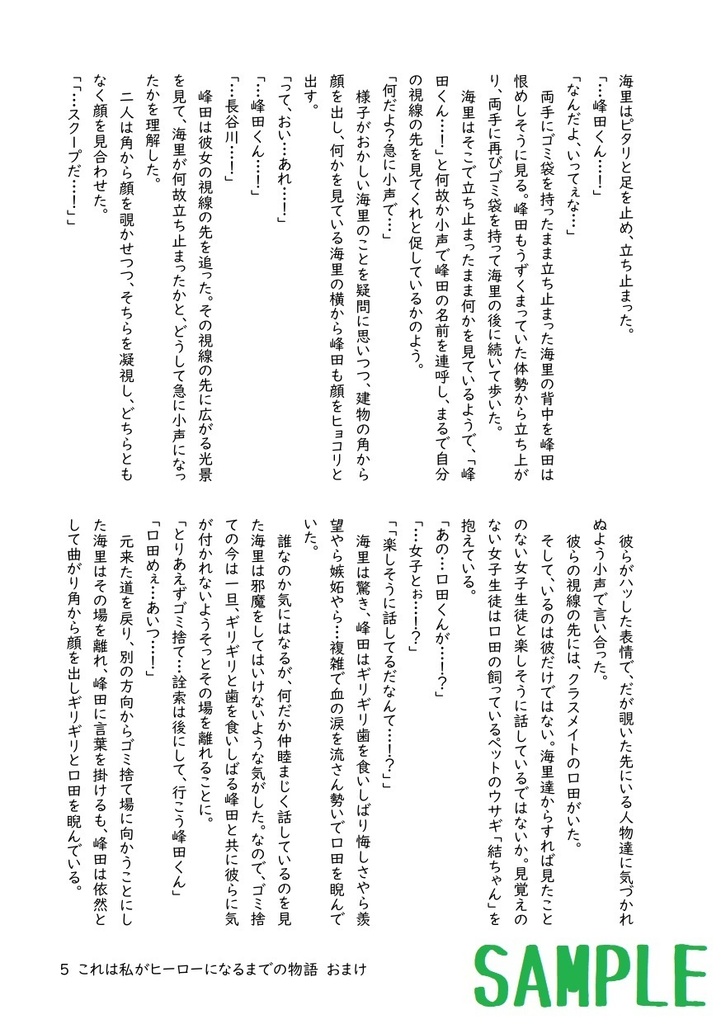 海里はピタリと足を止め、立ち止まった。
「…峰田くん…！」
「なんだよ、いってぇな…」
　両手にゴミ袋を持ったまま立ち止まった海里の背中を峰田は
恨めしそうに見る。峰田もうずくまっていた体勢から立ち上が
り、両手に再びゴミ袋を持って海里の後に続いて歩いた。
　海里はそこで立ち止まったまま何かを見ているようで、「峰
田くん…！」と何故か小声で峰田の名前を連呼し、まるで自分
の視線の先を見てくれと促しているかのよう。
「何だよ？急に小声で…」
　様子がおかしい海里のことを疑問に思いつつ、建物の角から
顔を出し、何かを見ている海里の横から峰田も顔をヒョコリと
出す。
「って、おい…あれ…！」
「…峰田くん…！」
「…長谷川…！」
　峰田は彼女の視線の先を追った。その視線の先に広がる光景
を見て、海里が何故立ち止まったかと、どうして急に小声になっ
たかを理解した。
　二人は角から顔を覗かせつつ、そちらを凝視し、どちらとも
なく顔を見合わせた。
「「…スクープだ…！」」
　彼らがハッした表情で、だが覗いた先にいる人物達に気づかれ
ぬよう小声で言い合った。
　彼らの視線の先には、クラスメイトの口田がいた。
　そして、いるのは彼だけではない。海里達からすれば見たこと
のない女子生徒と楽しそうに話しているではないか。見覚えの
ない女子生徒は口田の飼っているペットのウサギ「結ちゃん」を
抱えている。
「あの…口田くんが…！？」
「…女子とぉ…！？」
「「楽しそうに話してるだなんて…！？」」
　海里は驚き、峰田はギリギリ歯を食いしばり悔しさやら羨
望やら嫉妬やら…複雑で血の涙を流さん勢いで口田を睨んで
いた。
　誰なのか気にはなるが、何だか仲睦まじく話しているのを見
た海里は邪魔をしてはいけないような気がした。なので、ゴミ捨
ての今は一旦、ギリギリと歯を食いしばる峰田と共に彼らに気
が付かれないようそっとその場を離れることに。
「とりあえずゴミ捨て…詮索は後にして、行こう峰田くん」
「口田めぇ…あいつ…！」
　元来た道を戻り、別の方向からゴミ捨て場に向かうことにし
た海里はその場を離れ、峰田に言葉を掛けるも、峰田は依然と
して曲がり角から顔を出しギリギリと口田を睨んでいる。
5 これは私がヒーローになるまでの物語 おまけ
SAMPLE